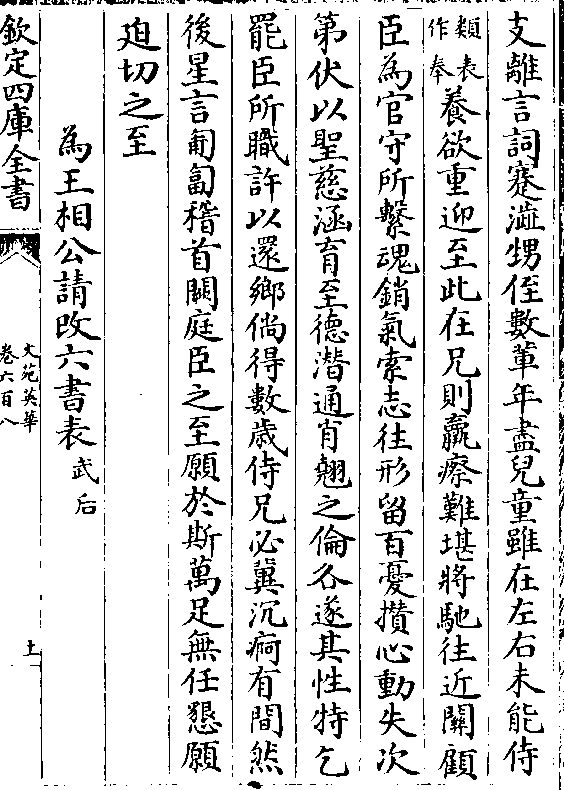 支離言詞蹇澁甥侄數輩年盡兒童雖在左右未能侍
類表作奉養欲重迎至此在兄則羸瘵難堪將馳往近關顧
臣為官守所繫魂銷氣索志往形留百憂攢心動失次
第伏以聖慈涵育至德潛通肖翹之倫各遂其性特乞
罷臣所職許以還鄉倘得數歲侍兄必冀沉痾有間然
後星言匍匐稽首闕庭臣之至願於斯萬足無任懇願
迫切之至
為王相公請改六書表武后
欽定四庫全書
文苑英華
卷六百八
十一